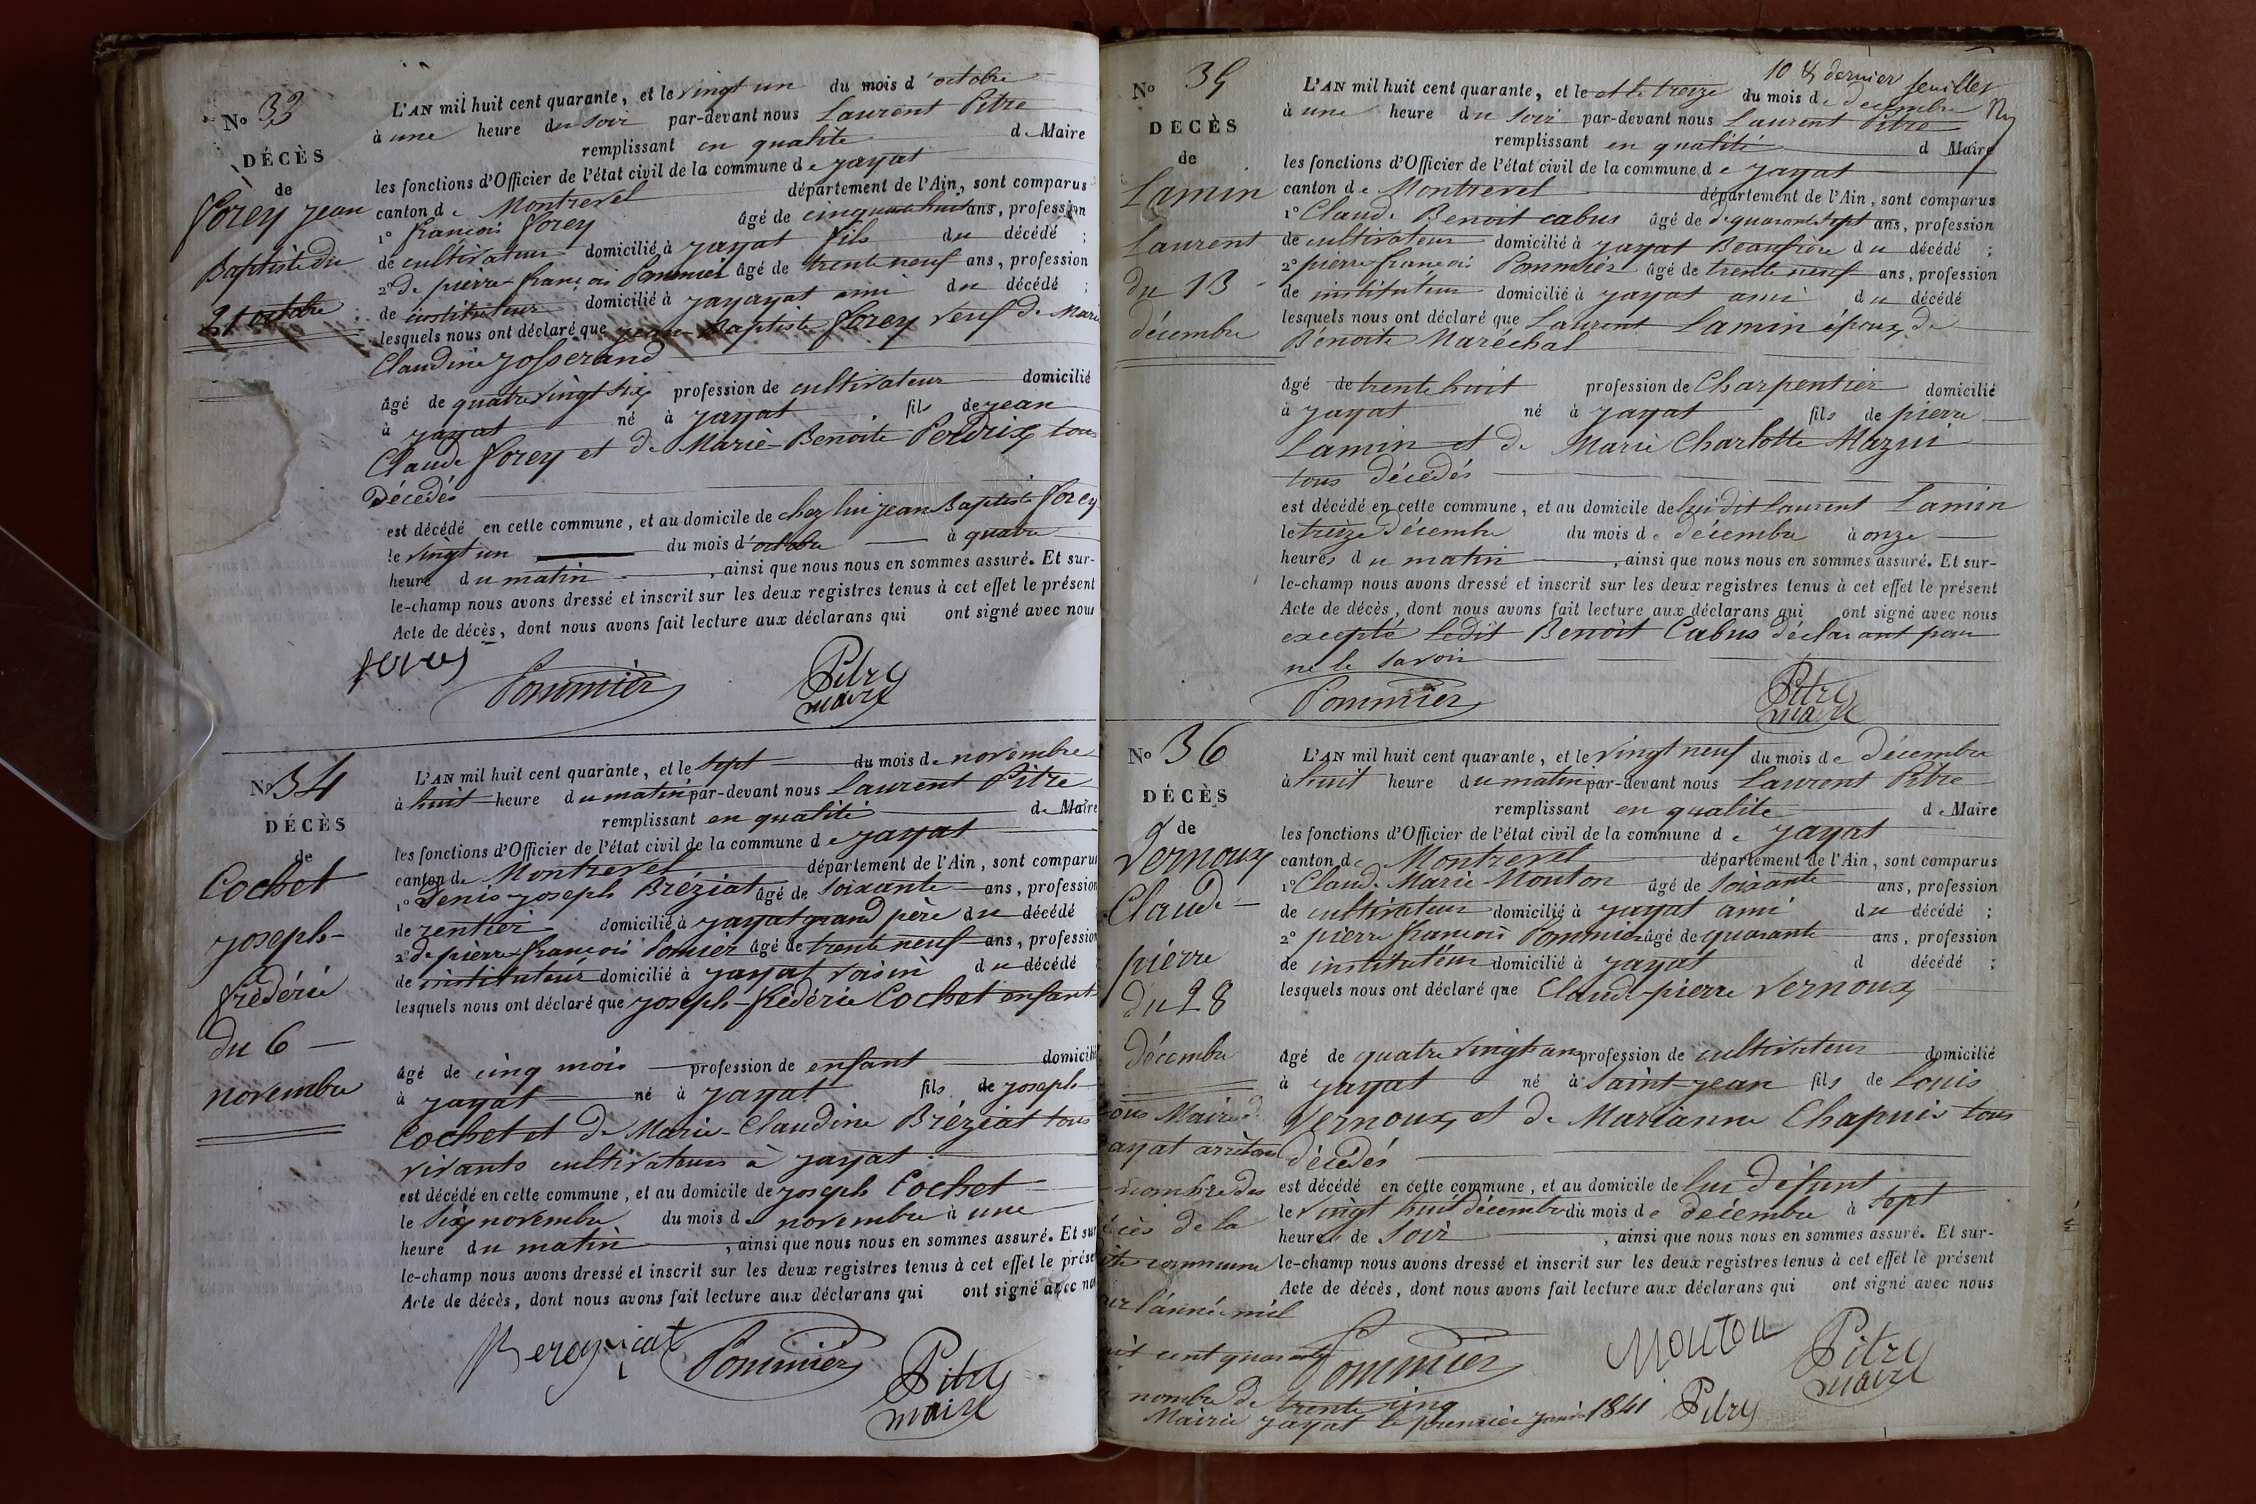 No 33
DÉCÈS
de
forey jean
Baptiste du
21 octobre
L'AN mil huit cent quarante, et le vingt un du mois d'octobre
à une heure du soir par-devant nous Laurent Pitre
remplissant en qualité de Maire
les fonctions d'Officier de l'état civil de la commune de jayat
canton de Montrevel département de l'Ain, sont comparus
1° françois forey âgé de cinquante huit ans, profession
de cultivateur domicilié à jayat fils du décédé ;
2° de pierre françois Pommier âgé de trente neuf ans, profession
de instituteur domicilié à jayat ami du décédé ;
lesquels nous ont déclaré que jean Baptiste forey veuf de Marie
Claudine josserand
âgé de quatre vingt six profession de cultivateur domicilié
à jayat né à jayat fils de jean
Claude forey et de Marie Benoite Perdrix tous
Décédés
est décédé en cette commune, et au domicile de chez lui jean Baptiste forey
le vingt un du mois d'octobre à quatre
heure du matin, ainsi que nous nous en sommes assuré. Et sur-
le-champ nous avons dressé et inscrit sur les deux registres tenus à cet effet le présent
Acte de décès, dont nous avons fait lecture aux déclarans qui ont signé avec nous
forey Pommier Pitre
maire
No 34
DÉCÈS
de
Cochet
joseph-
frédéric
du 6
novembre
L'AN mil huit cent quarante, et le sept du mois de novembre
à huit heure du matin par-devant nous Laurent Pitre
remplissant en qualité de Maire
les fonctions d'Officier de l'état civil de la commune de jayat
canton de Montrevel département de l'Ain, sont comparus
1° Denis joseph Bréziat âgé de soixante ans, profession
de rentier domicilié à jayat grand père du décédé
2° de pierre françois Pomier âgé de trente neuf ans, profession
de instituteur domicilié à jayat voisin du décédé
lesquels nous ont déclaré que joseph-frédéric Cochet enfant
âgé de cinq mois profession de enfant domicilié
à jayat né à jayat fils de joseph
Cochet et de Marie-Claudine Bréziat tous
vivants cultivateurs à jayat
est décédé en cette commune, et au domicile de joseph Cochet
le six novembre du mois de novembre à une
heure du matin, ainsi que nous nous en sommes assuré. Et sur
le-champ nous avons dressé et inscrit sur les deux registres tenus à cet effet le présent
Acte de décès, dont nous avons fait lecture aux déclarans qui ont signé avec nous
Pommier Pitre
maire
10 & dernier feuillet
No 35
DECÈS
de
Lamin
Laurent
du 13
décembre
L'AN mil huit cent quarante, et le et le treize du mois de décembre
à une heure du soir par-devant nous Laurent Pitre
remplissant en qualité d Maire
les fonctions d'Officier de l'état civil de la commune de jayat
canton de Montrevel département de l'Ain, sont comparus
1° Claude Benoit Cabus âgé de de quarante sept ans, profession
de cultivateur domicilié à jayat Beaufrère du décédé ;
2° pierre françois Pommier âgé de trente neuf ans, profession
de instituteur domicilié à jayat ami du décédé
lesquels nous ont déclaré que Laurent Lamin époux de
Bénoite Maréchal
âgé de trente huit profession de Charpentier domicilié
à jayat né à jayat fils de pierre
Lamin et de Marie Charlotte Mazui
tous décédés
est décédé en cette commune, et au domicile de lui dit Laurent Lamin
le treize Décembre du mois de décembre à onze
heures du matin, ainsi que nous nous en sommes assuré. Et sur-
le-champ nous avons dressé et inscrit sur les deux registres tenus à cet effet le présent
Acte de décès, dont nous avons fait lecture aux déclarans qui ont signé avec nous
excepté ledit Benoit Cabus déclarant pour
ne le savoir
Pommier Pitre
maire
No 36
DÉCÈS
de
Vernoux
Claude-
pierre
du 28
Décembre
L'AN mil huit cent quarante, et le vingt neuf du mois de décembre
à huit heure du matin par-devant nous Laurent Pitre
remplissant en qualité de Maire
les fonctions d'Officier de l'état civil de la commune de jayat
canton de Montrevel département de l'Ain, sont comparus
1° Claude Marie Mouton âgé de soixante ans, profession
de cultivateur domicilié à jayat ami du décédé ;
2° pierre françois Pommier âgé de quarante ans, profession
de instituteur domicilié à jayat d décédé ;
lesquels nous ont déclaré que Claude-pierre Vernoux
âgé de quatre vingt ans profession de cultivateur domicilié
à jayat né à Saint jean fils de Louis
Vernoux et de Marianne Chapuis tous
décédés
est décédé en cette commune, et au domicile de lui défunt
le vingt huit décembre du mois de décembre à sept
heures de soir, ainsi que nous nous en sommes assuré. Et sur-
le-champ nous avons dressé et inscrit sur les deux registres tenus à cet effet le présent
Acte de décès, dont nous avons fait lecture aux déclarans qui ont signé avec nous
Pommier Mouton Pitre
maire
nous Maire de
jayat arrêtons
nombre des
décès de la
dite commune
pour l'année mil
huit cent quarante
nombre de trente cinq
Mairie jayat le premier janvier 1841 Pitre